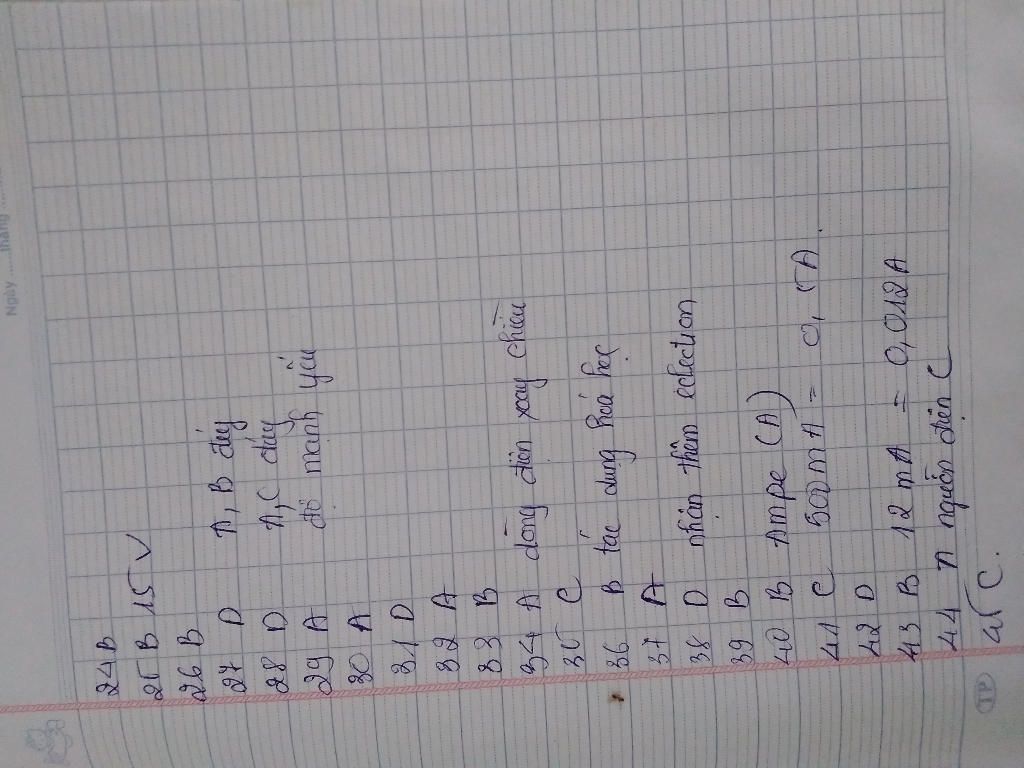 Ngày ...... tháng ......
24 B
25 B 15 V
26 B
27 D A, B đẩy
28 D A, C đẩy
29 A độ mạnh yếu
30 A
31 D
32 A
33 B
34 A dòng điện xoay chiều
35 C
36 B tác dụng hoá học
37 A
38 D nhận thêm eclection
39 B
40 B Ampe (A)
41 C 500 mA = 0,5A.
42 D
43 B 12 mA = 0,012A
44 n nguồn điện C
45 C.
TP